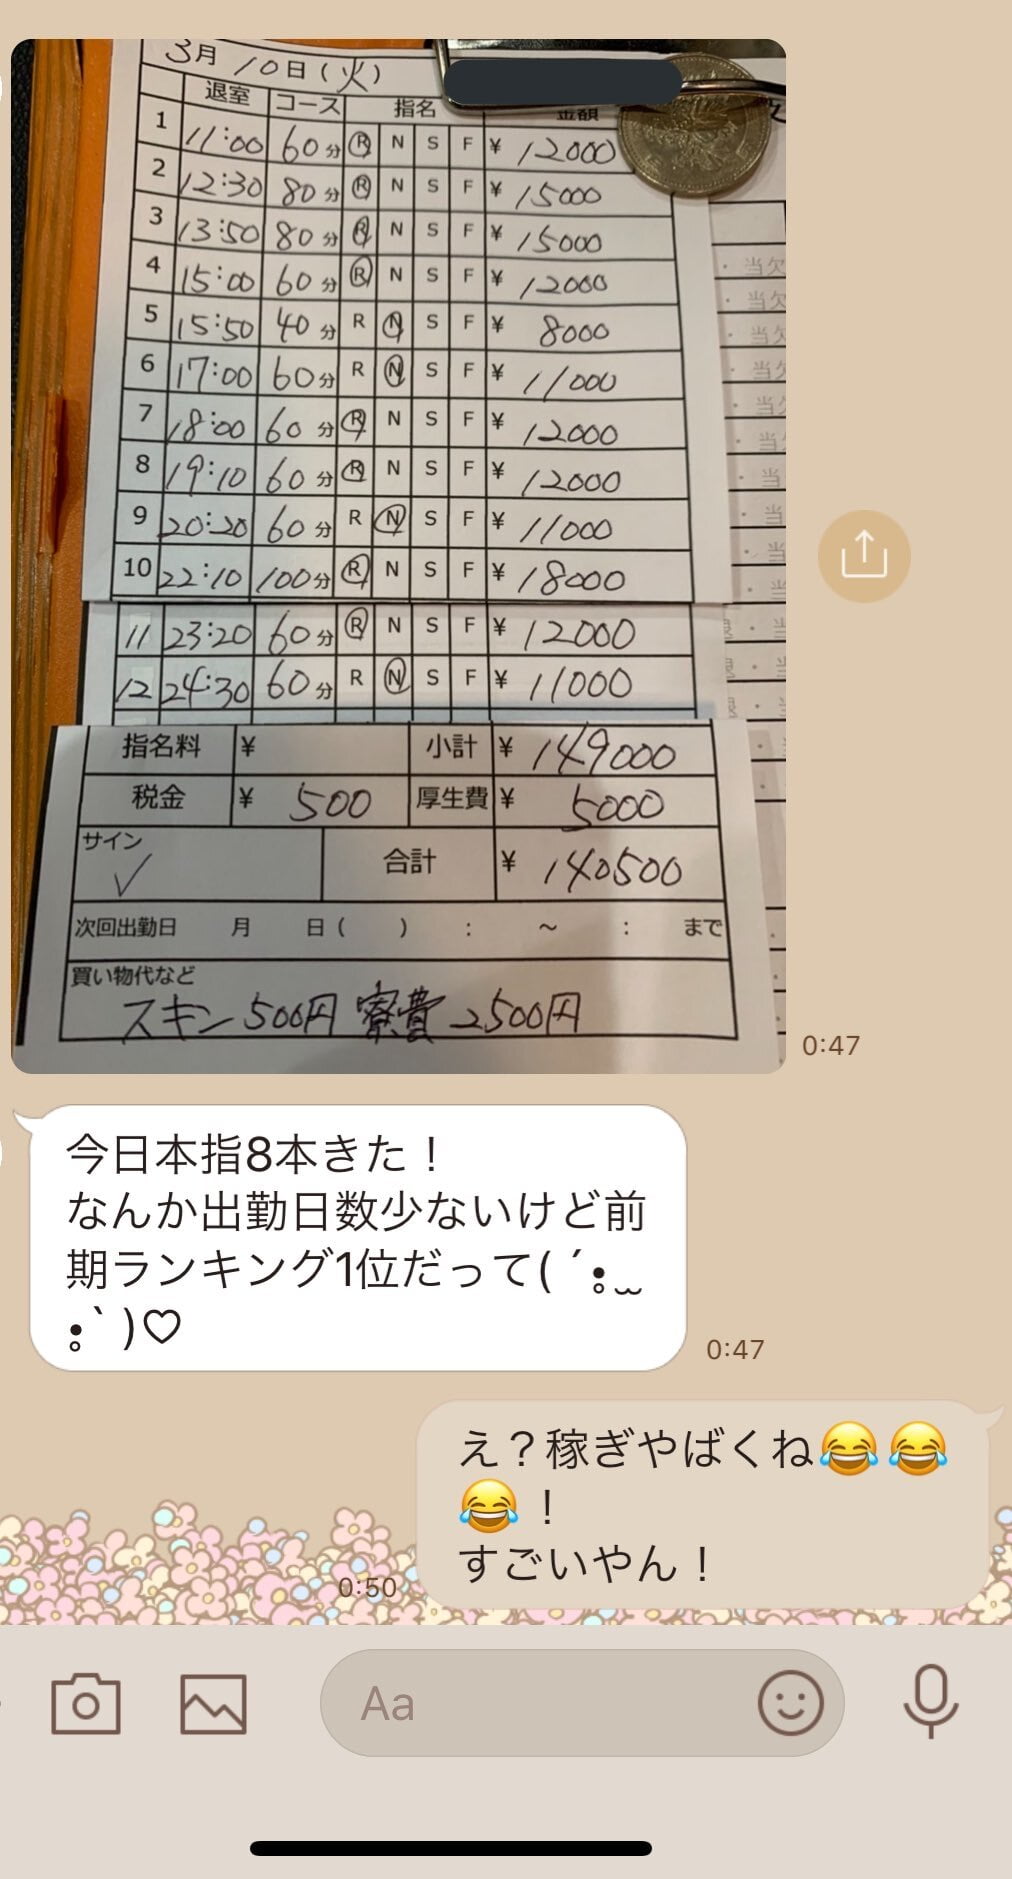 3月 10日(火)
退室 コース 指名 金額
1 11:00 60分 R N S F ¥ 12000
2 12:30 80分 R N S F ¥ 15000
3 13:50 80分 R N S F ¥ 15000
4 15:00 60分 R N S F ¥ 12000
5 15:50 40分 R N S F ¥ 8000
6 17:00 60分 R N S F ¥ 11000
7 18:00 60分 R N S F ¥ 12000
8 19:10 60分 R N S F ¥ 12000
9 20:20 60分 R N S F ¥ 11000
10 22:10 100分 R N S F ¥ 18000
11 23:20 60分 R N S F ¥ 12000
12 24:30 60分 R N S F ¥ 11000
指名料 ¥ 小計 ¥ 149000
税金 ¥ 500 厚生費 ¥ 5000
サイン 合計 ¥ 140500
次回出勤日 月 日( ) : ~ : まで
買い物代など
スキン500円 寮費2500円
・当欠
・当欠
・当
0:47
今日本指8本きた！
なんか出勤日数少ないけど前
期ランキング1位だって( ´•̥ ̫
•̥` )♡
0:47
え？稼ぎやばくね😂😂
😂！
すごいやん！
0:50
Aa